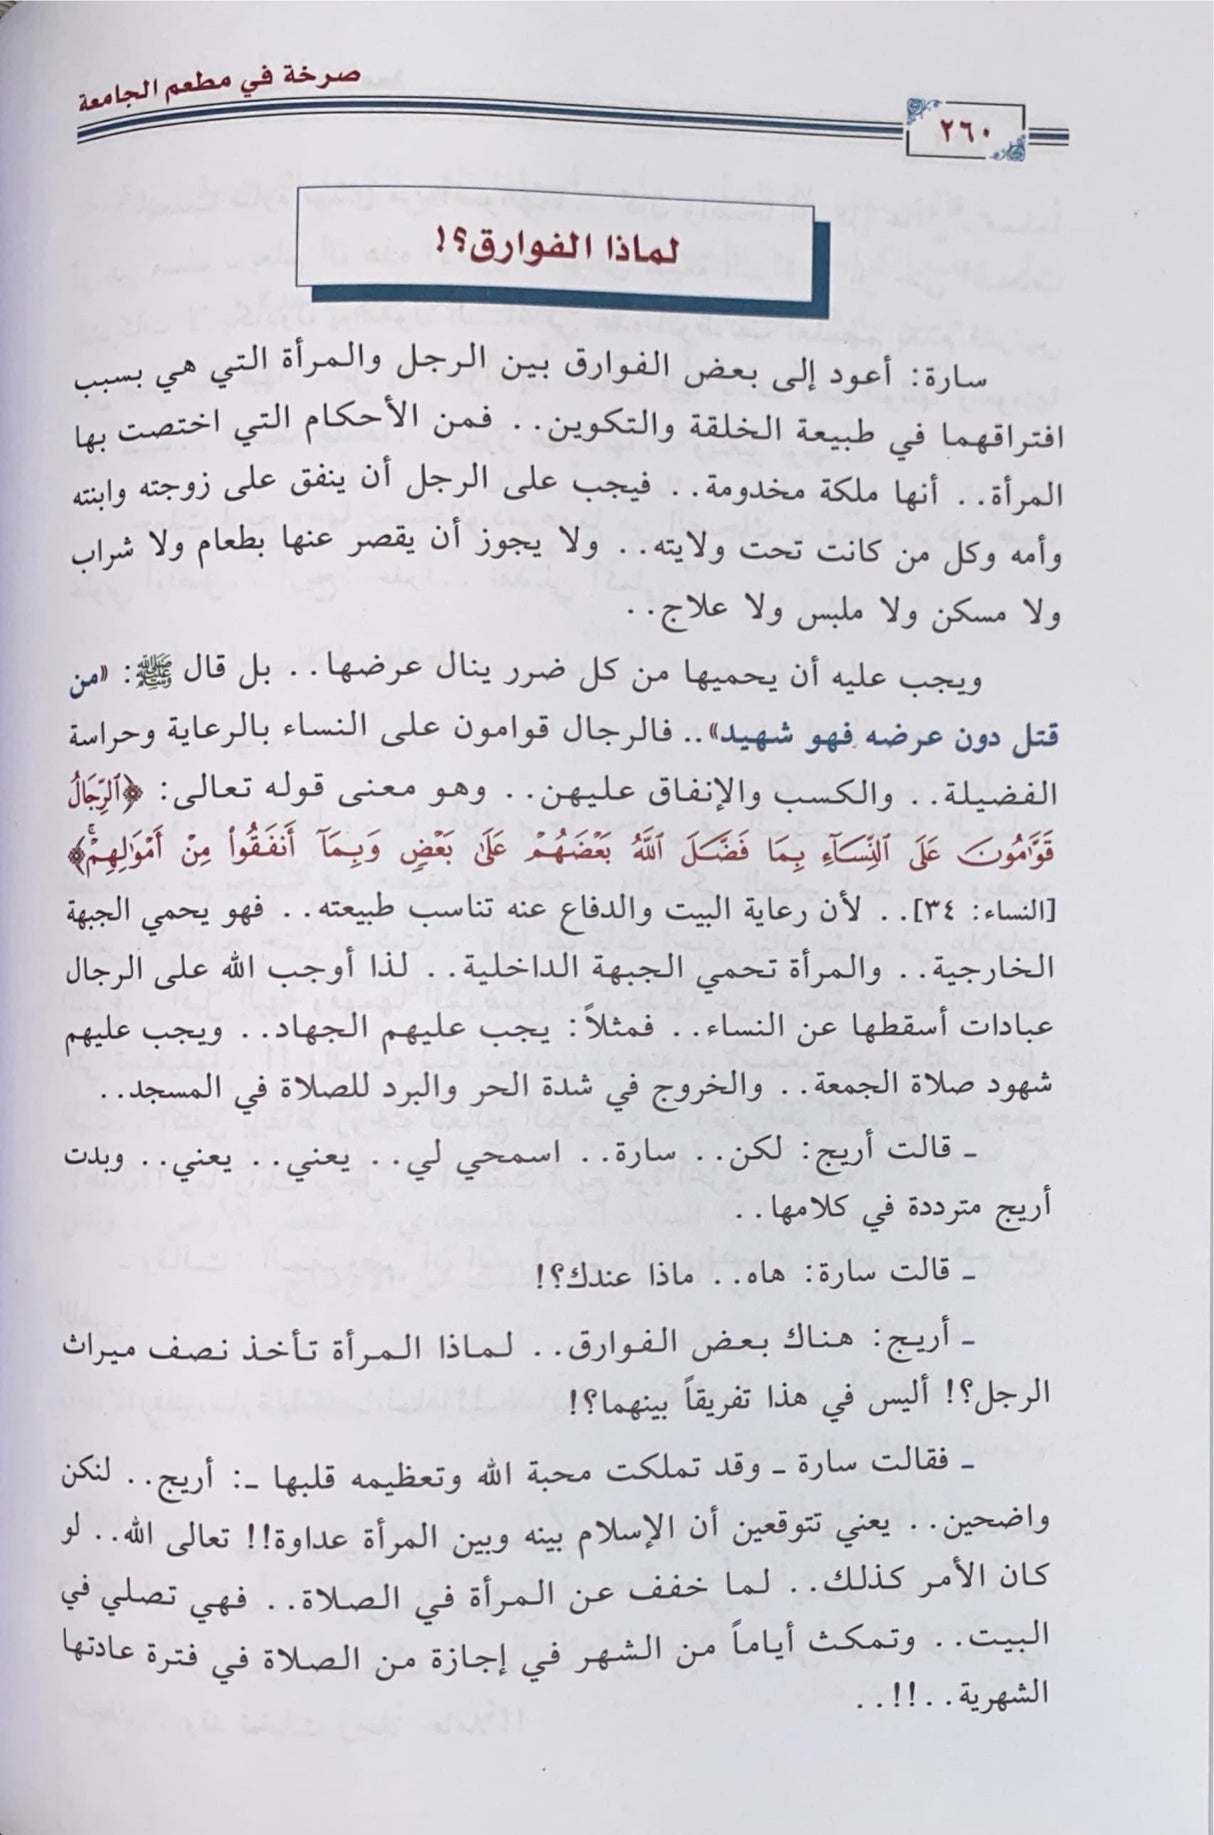 صرخة في مطعم الجامعة
٢٦٠
لماذا الفوارق؟!
سارة: أعود إلى بعض الفوارق بين الرجل والمرأة التي هي بسبب
افتراقهما في طبيعة الخلقة والتكوين.. فمن الأحكام التي اختصت بها
المرأة.. أنها ملكة مخدومة.. فيجب على الرجل أن ينفق على زوجته وابنته
وأمه وكل من كانت تحت ولايته.. ولا يجوز أن يقصر عنها بطعام ولا شراب
ولا مسكن ولا ملبس ولا علاج..
ويجب عليه أن يحميها من كل ضرر ينال عرضها.. بل قال ﷺ: «من
قتل دون عرضه فهو شهيد».. فالرجال قوامون على النساء بالرعاية وحراسة
الفضيلة.. والكسب والإنفاق عليهن.. وهو معنى قوله تعالى: ﴿ٱلرِّجَالُ
قَوَّٰمُونَ عَلَى ٱلنِّسَآءِ بِمَا فَضَّلَ ٱللَّهُ بَعۡضَهُمۡ عَلَىٰ بَعۡضٖ وَبِمَآ أَنفَقُواْ مِنۡ أَمۡوَٰلِهِمۡۚ﴾
[النساء: ٣٤].. لأن رعاية البيت والدفاع عنه تناسب طبيعته.. فهو يحمي الجبهة
الخارجية.. والمرأة تحمي الجبهة الداخلية.. لذا أوجب الله على الرجال
عبادات أسقطها عن النساء.. فمثلاً: يجب عليهم الجهاد.. ويجب عليهم
شهود صلاة الجمعة.. والخروج في شدة الحر والبرد للصلاة في المسجد..
ـ قالت أريج: لكن.. سارة.. اسمحي لي.. يعني.. يعني.. وبدت
أريج مترددة في كلامها..
ـ قالت سارة: هاه.. ماذا عندك؟!
ـ أريج: هناك بعض الفوارق.. لماذا المرأة تأخذ نصف ميراث
الرجل؟! أليس في هذا تفريقاً بينهما؟!
ـ فقالت سارة ـ وقد تملكت محبة الله وتعظيمه قلبها ـ: أريج.. لنكن
واضحين.. يعني تتوقعين أن الإسلام بينه وبين المرأة عداوة!! تعالى الله.. لو
كان الأمر كذلك.. لما خفف عن المرأة في الصلاة.. فهي تصلي في
البيت.. وتمكث أياماً من الشهر في إجازة من الصلاة في فترة عادتها
الشهرية..!!..